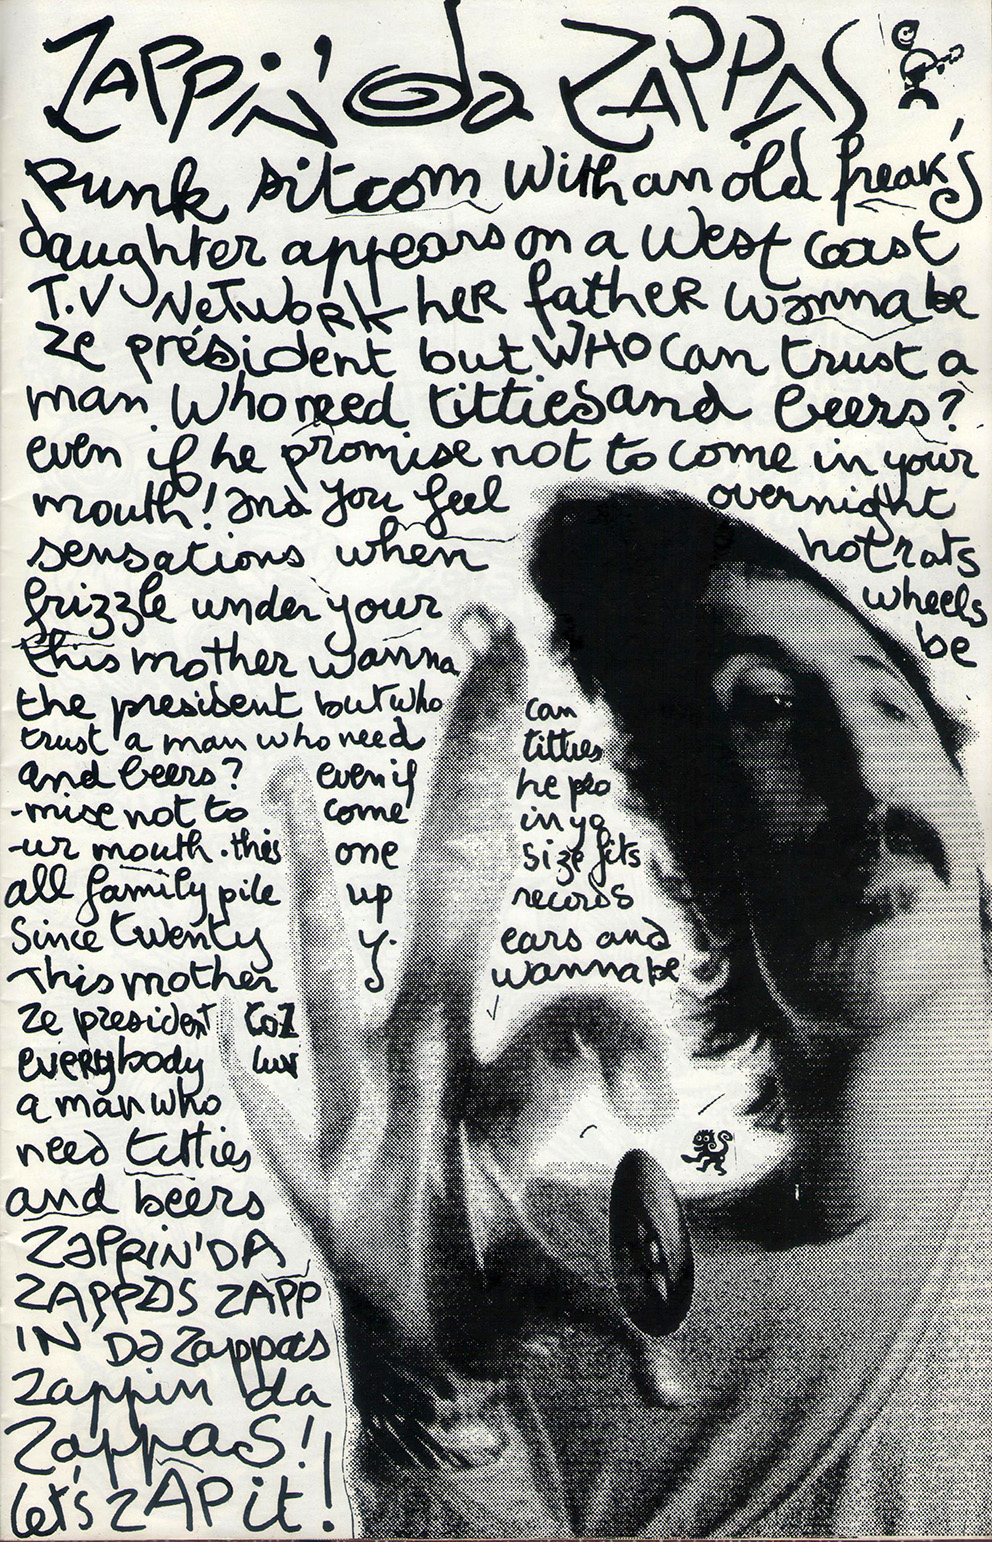 ZAPPiN' da ZAPPAS
Punk sitcom with an old freak's
daughter appears on a West coast
T.V NeTwoRK heR fatheR wanna be
ze président but WHO can trust a
man. Who need titties and beers?
even if he promise not to come in your
mouth! and you feel overnight
sensations when hot rats
frizzle under your wheels
this mother wanna be
the president but who can
trust a man who need titties
and beers? even if he pro
-mise not to come in yo
-ur mouth. this one size fits
all family pile up records
Since twenty y. ears and
This mother wanna be
ze president CoZ
everybody luv
a man who
need titties
and beers
ZaPPiN'DA
ZAPPAS ZAPP
IN Da Zappas
Zappin da
ZappaS!
let's ZAP it!